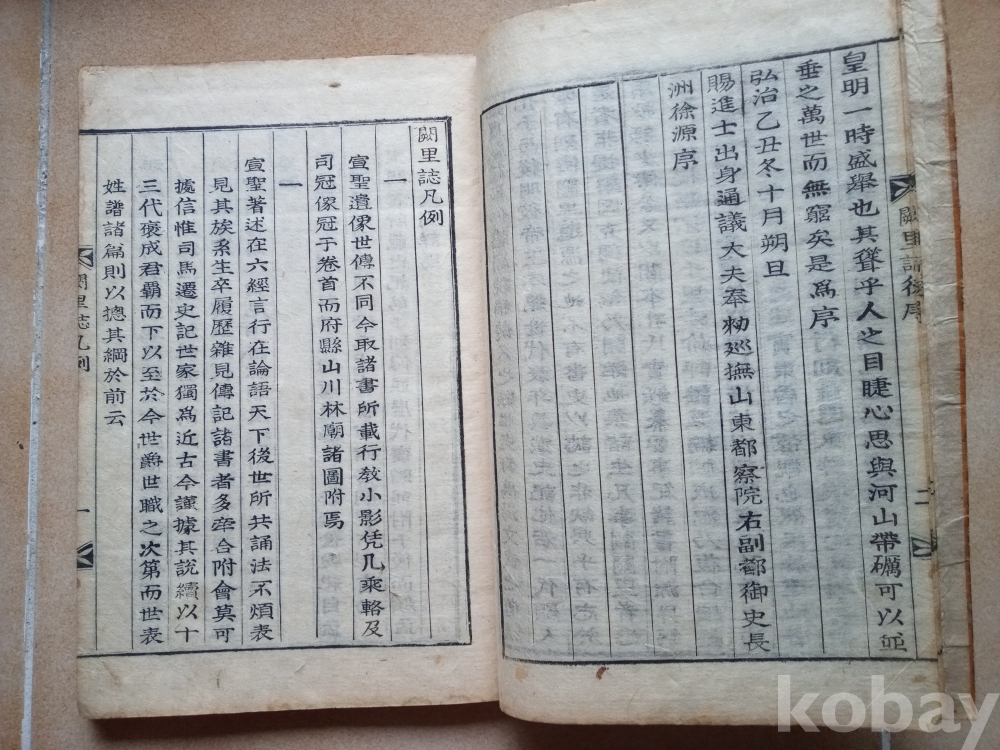 皇明一時盛舉也其聳乎人之目睫心思與河山帶礪可以並
垂之萬世而無窮矣是爲序
弘治乙丑冬十月朔旦
賜進士出身通議大夫奉勑巡撫山東都察院右副都御史長
洲徐源序
闕里誌後序
二
闕里誌凡例
一
宣聖遺像世傳不同今取諸書所載行教小影凭几乘輅及
司寇像冠于卷首而府縣山川林廟諸圖附焉
一
宣聖著述在六經言行在論語天下後世所共誦法不煩表
見其族系生卒履歷雜見傳記諸書者多牽合附會莫可
據信惟司馬遷史記世家獨爲近古今謹據其說續以十
三代褒成君霸而下以至於今世爵世職之次第而世表
姓譜諸篇則以摠其綱於前云
闕里誌凡例
一
kobay